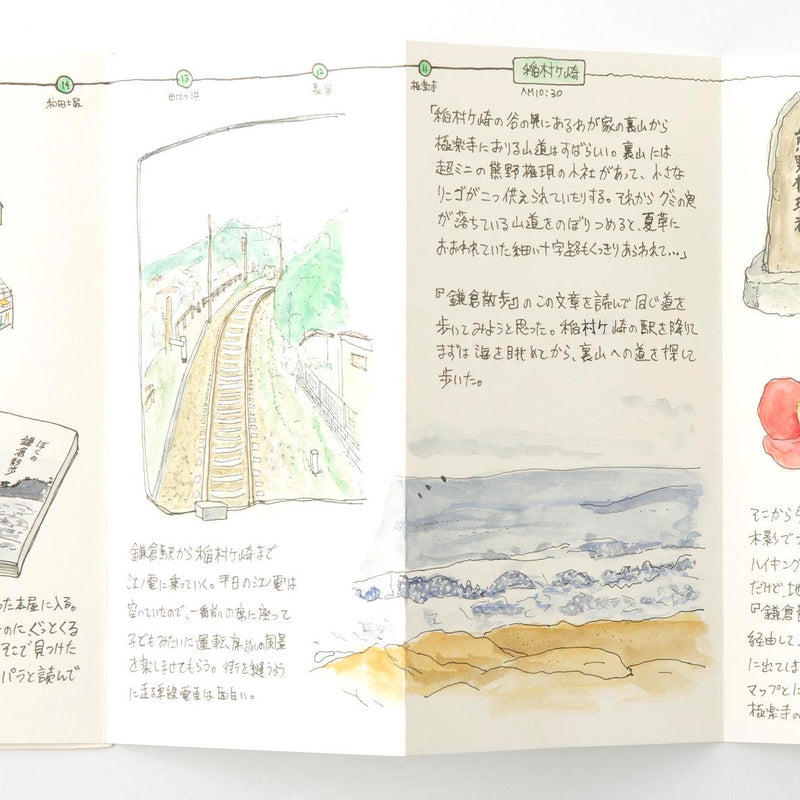 14
和田塚
13
由比ヶ浜
12
長谷
11
極楽寺
稲村ヶ崎
AM10:30
ぼくの
鎌倉散歩
た本屋に入る。
のにぐっとくる
そこで見つけた
パラと読んで
鎌倉駅から稲村ヶ崎まで
江ノ電に乗っていく。平日の江ノ電は
空いていたので、一番前の席に座って
子どもみたいに運転席越しの風景
を楽しませてもらう。街を縫うよう
に走る単線電車は面白い。
「稲村ヶ崎の谷の奥にあるわが家の裏山から
極楽寺におりる山道はすばらしい。裏山には
超ミニの熊野権現の小社があって、小さな
リンゴが二つ供えられていたりする。それからグミの実
が落ちている山道をのぼりつめると、夏草に
おおわれていた細い十字路もくっきりあらわれて…」
『鎌倉散歩』のこの文章を読んで同じ道を
歩いてみようと思った。稲村ヶ崎の駅を降りて
まずは海を眺めてから、裏山への道を探して
歩いた。
熊野権現
そこから
木影で
ハイキング
だけど、
『鎌倉
経由して、
に出ては
マップとに
極楽寺の